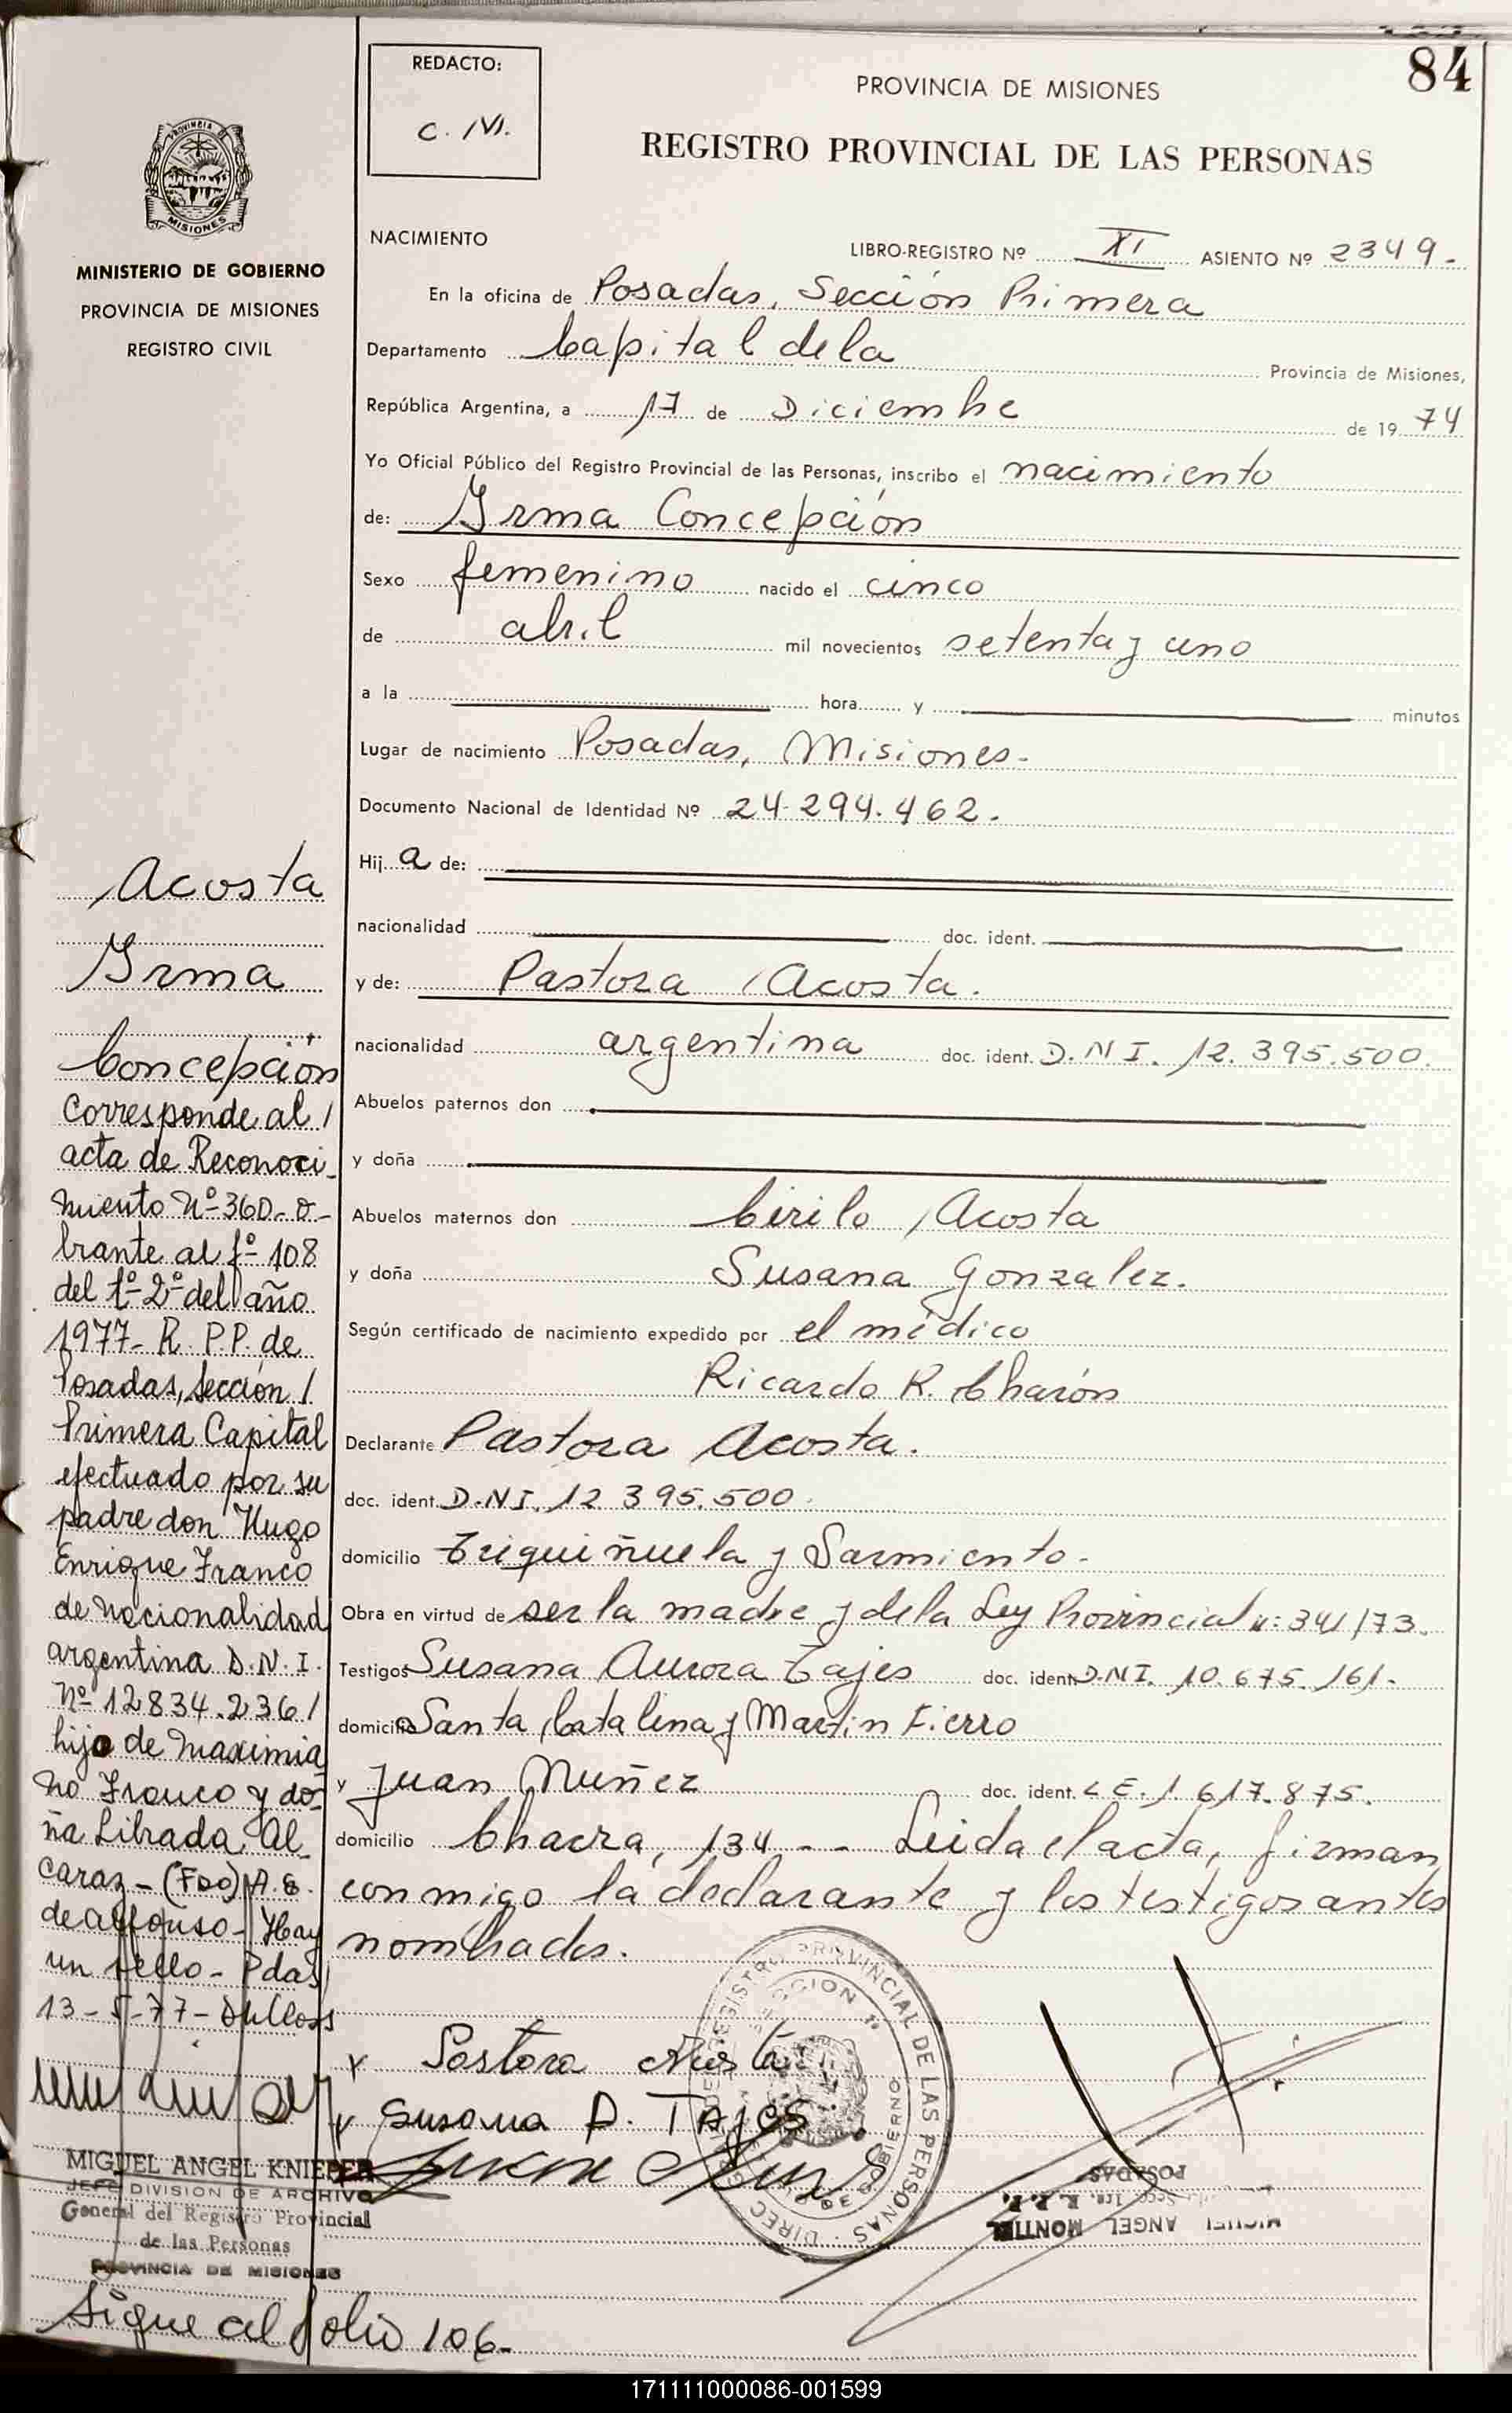 84
REDACTO:
C. M.
PROVINCIA DE MISIONES
REGISTRO PROVINCIAL DE LAS PERSONAS
PROVINCIA
MISIONES
MINISTERIO DE GOBIERNO
PROVINCIA DE MISIONES
REGISTRO CIVIL
NACIMIENTO
LIBRO-REGISTRO Nº XI ASIENTO Nº 2349.-
En la oficina de Posadas, Sección Primera
Departamento Capital de la Provincia de Misiones,
República Argentina, a 17 de Diciembre de 19 74
Yo Oficial Público del Registro Provincial de las Personas, inscribo el nacimiento
de: Irma Concepción
Sexo femenino nacido el cinco
de abril mil novecientos setenta y uno
a la hora y minutos
Lugar de nacimiento Posadas, Misiones.-
Documento Nacional de Identidad Nº 24.294.462.
Hij a de:
nacionalidad doc. ident.
y de: Pastora Acosta.
nacionalidad argentina doc. ident. D.N.I. 12.395.500.
Abuelos paternos don
y doña
Abuelos maternos don Cirilo Acosta
y doña Susana Gonzalez.
Según certificado de nacimiento expedido por el médico
Ricardo R. Charón
Declarante Pastora Acosta.
doc. ident. D.N.I. 12.395.500.
domicilio Triquiñuela y Sarmiento.-
Obra en virtud de ser la madre y de la Ley Provincial n: 341/73.
Testigos Susana Aurora Tajes doc. ident D.N.I. 10.675.161.-
domicilio Santa Catalina y Martin Fierro
y Juan Nuñez doc. ident. L.E. 1.617.875.
domicilio Chacra, 134 -- Leida el acta, firman
conmigo la declarante y los testigos antes
nombrados.
Acosta
Irma
Concepción
Corresponde al /
acta de Reconoci-
miento Nº 360- o-
brante al fº 108
del tº 2º del año
1977- R. P.P. de
Posadas, Sección /
Primera Capital
efectuado por su
padre don Hugo
Enrique Franco
de nacionalidad
argentina D.N.I.
Nº 12834.236/
hijo de Maximia
no Franco y do-
ña Librada Al
caraz - (FDO) A. E.
de Alfonso - Hay
un sello - Pdas
13-5-77-
Pastora Acosta
Susana A. Tajes
Juan Nuñez
REGISTRO PROVINCIAL DE LAS PERSONAS
MIGUEL ANGEL MONTIEL
POSADAS
MIGUEL ANGEL KNIEPER
JEFE DIVISION DE ARCHIVO
General del Registro Provincial
de las Personas
PROVINCIA DE MISIONES
Sigue al folio 106-
171111000086-001599